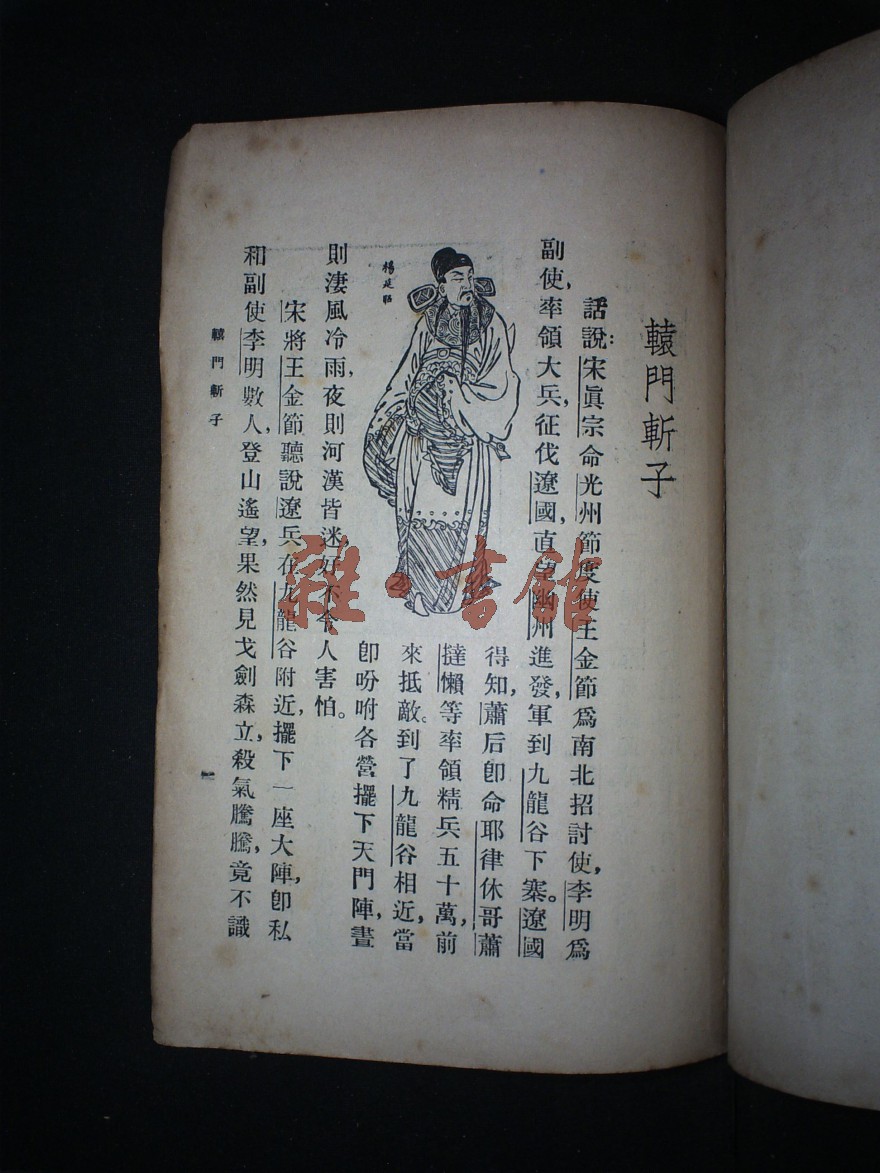 轅門斬子
話說:宋眞宗命光州節度使王金節爲南北招討使,李明爲
副使,率領大兵,征伐遼國,直望幽州進發,軍到九龍谷下寨。遼國
得知,蕭后卽命耶律休哥蕭
撻懶等率領精兵五十萬,前
來抵敵。到了九龍谷相近,當
卽吩咐各營擺下天門陣,晝
楊延昭
則淒風冷雨,夜則河漢皆迷,好不令人害怕。
宋將王金節聽說遼兵在九龍谷附近,擺下一座大陣,卽私
和副使李明數人,登山遙望,果然見戈劍森立,殺氣騰騰,竟不識
轅門斬子
一
雜·書館